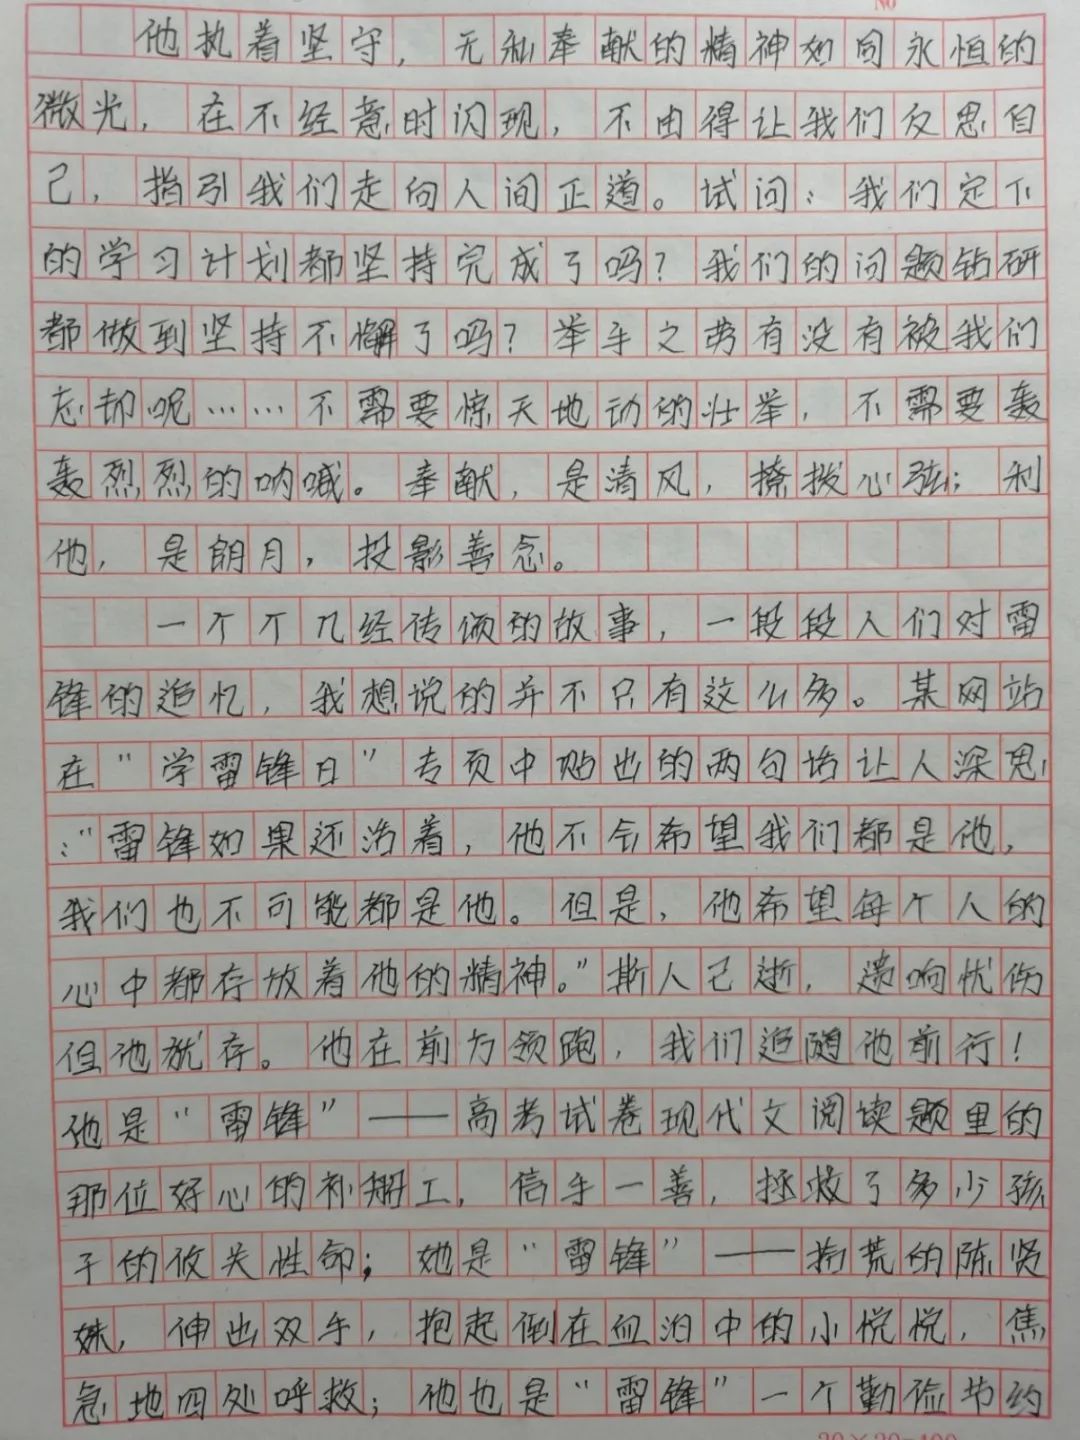 No
他执着坚守，无私奉献的精神如同永恒的
微光，在不经意时闪现，不由得让我们反思自
己，指引我们走向人间正道。试问：我们定下
的学习计划都坚持完成了吗？我们的问题钻研
都做到坚持不懈了吗？举手之劳有没有被我们
忘却呢……不需要惊天地动的壮举，不需要轰
轰烈烈的呐喊。奉献，是清风，撩拨心弦；利
他，是朗月，投影善念。
一个个几经传颂的故事，一段段人们对雷
锋的追忆，我想说的并不只有这么多。某网站
在“学雷锋日”专页中贴出的两句话让人深思
：“雷锋如果还活着，他不会希望我们都是他，
我们也不可能都是他。但是，他希望每个人的
心中都存放着他的精神。”斯人已逝，遗响忧伤
但他犹存。他在前方领跑，我们追随他前行！
他是“雷锋”——高考试卷现代文阅读题里的
那位好心的补船工，信手一善，拯救了多少孩
子的攸关性命；她是“雷锋”——拾荒的陈贤
妹，伸出双手，抱起倒在血泊中的小悦悦，焦
急地四处呼救；他也是“雷锋”一个勤俭节约
20×20=400